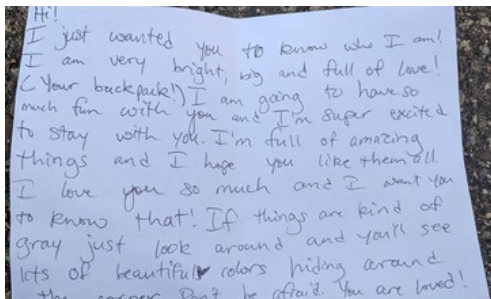 Hi!
I just wanted you to know who I am!
I am very bright, big and full of love!
(Your backpack!) I am going to have so
much fun with you and I'm super excited
to stay with you. I'm full of amazing
things and I hope you like them all.
I love you so much and I want you
to know that! If things are kind of
gray just look around and you'll see
lots of beautiful colors hiding around
the corner. Don't be afraid. You are loved!